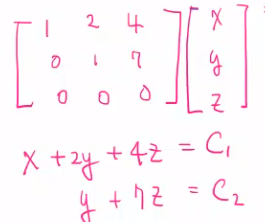 [1 2 4] [x]
[0 1 7] [y]
[0 0 0] [z]
x + 2y + 4z = C₁
y + 7z = C₂